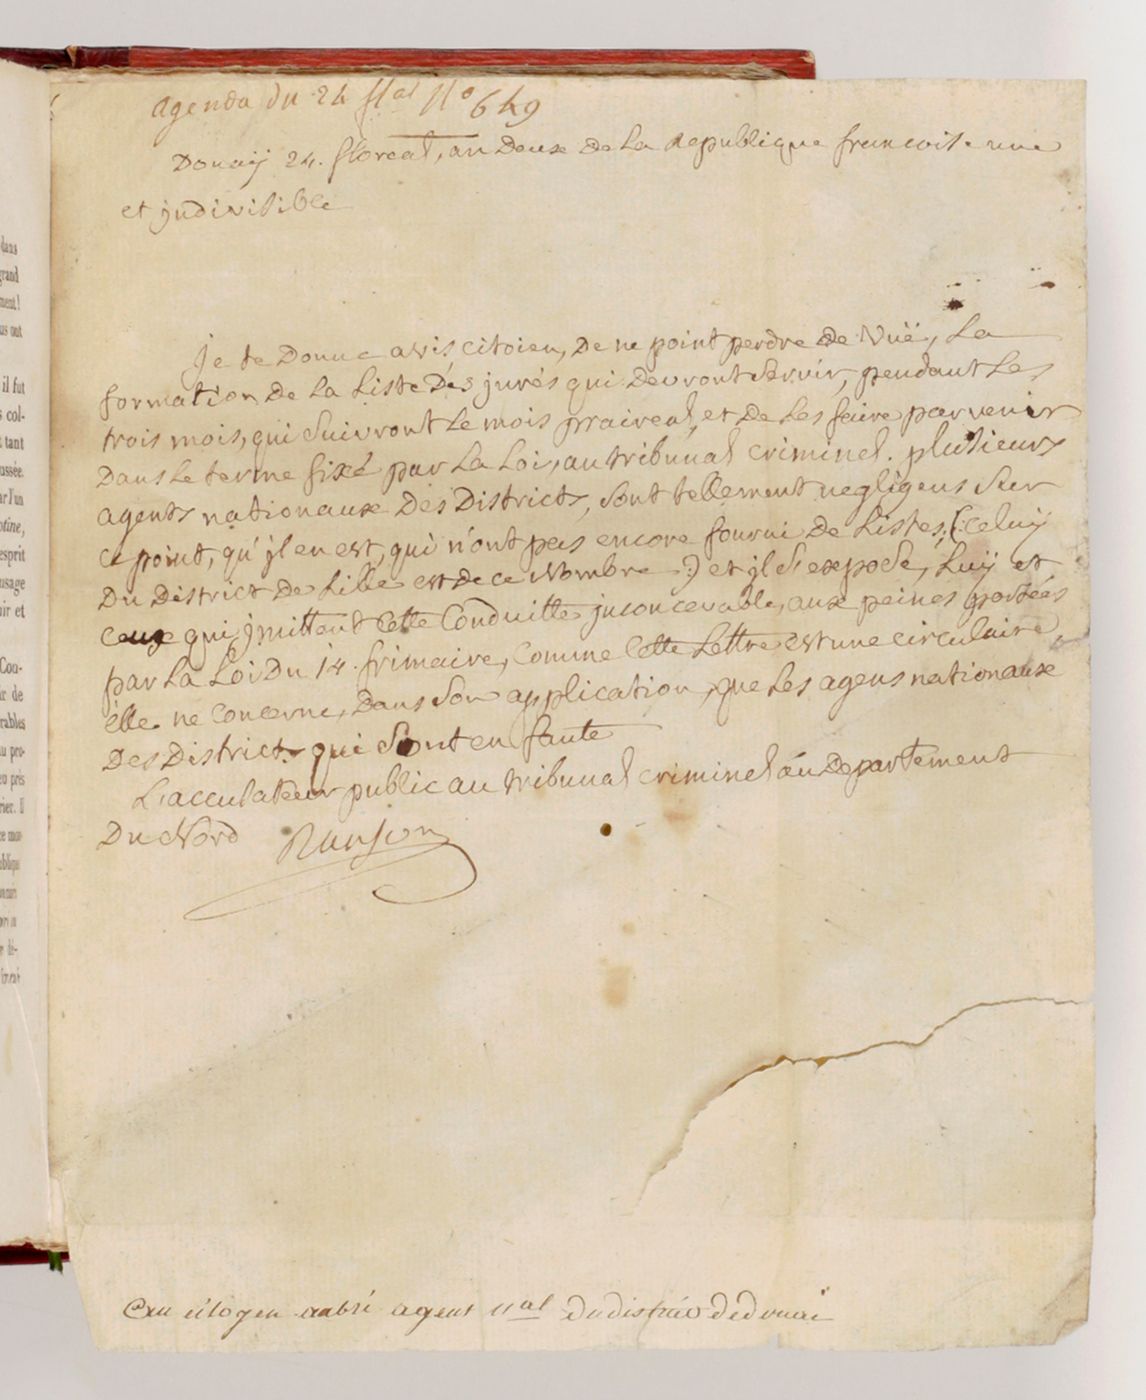 agenda du 24 flal No 649
Douaij 24. floreal, an Deux De La Republique francoise une
et jndivisible
Je te Donne avis citoien, De ne point perdre De Vuë, La
formation De La Liste Dés jurés qui Devront Servir, pendant Les
trois mois, qui Suivront Le mois praireal, et De Les faire parvenir
Dans Le terme fixé par La Loi, au tribunal criminel. plusieurs
agents nationaux Des Districts, Sont tellement negligens Sur
ce point, qu'jl en est, qui n'ont pas encore fourni De Listes, (: Celuij
Du District De Lille est De ce Nombre :) et jl S'expose, Luij et
ceux qui jmittent Cette Conduitte jnconcevable, aux peines portées
par La Loi Du 14. frimaire, Comme Cette Lettre est une circulaire,
élle ne Concerne, Dans Son application, que Les agens nationaux
Des Districts qui Sont en faute
L'accusateur public au tribunal criminel du Departement
Du Nord Ranson
au citoyen aubri agent nal du district de douai
dans
grand
ment!
us ont
il fut
s col-
t tant
ussée.
ar l'un
otine,
esprit
usage
air et
Con-
ar de
rables
au pro-